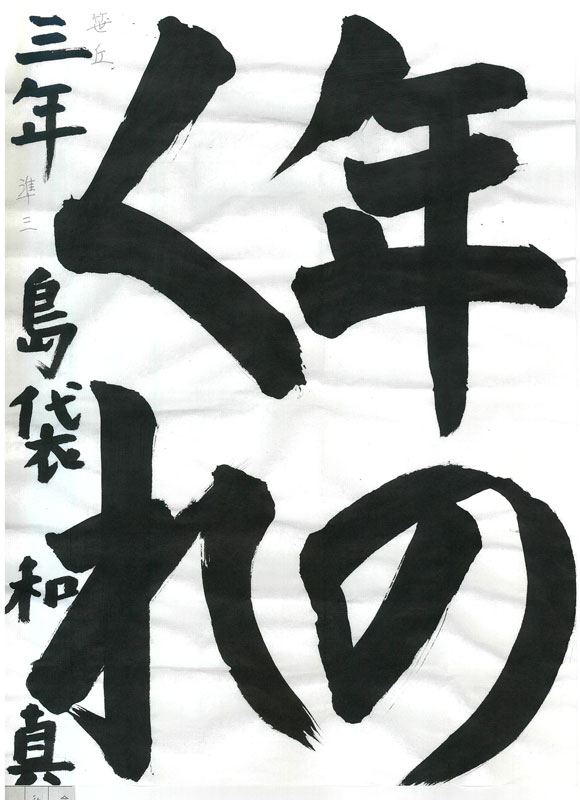 年の
くれ
三年 島袋 和真
笹丘
準三